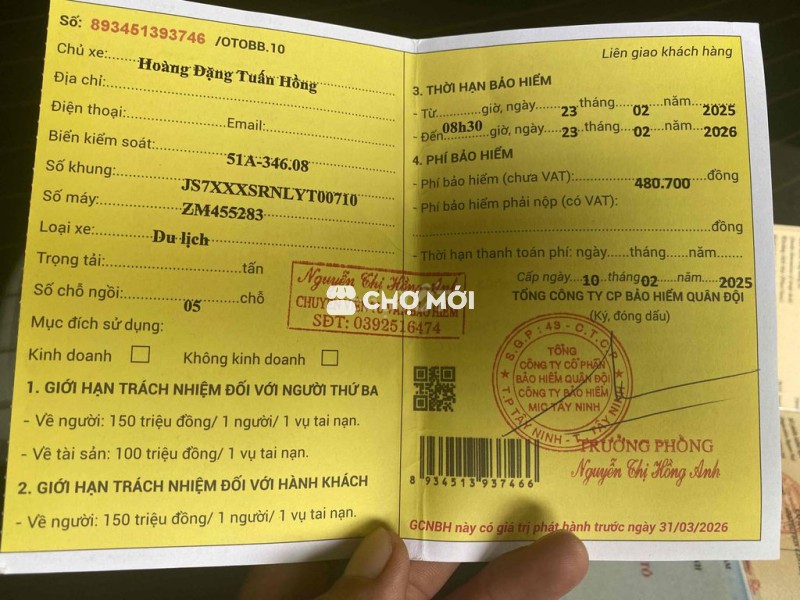 Số: 893451393746 /OTOBB.10
Chủ xe: Hoàng Đặng Tuấn Hồng
Địa chỉ:
Điện thoại: Email:
Biển kiểm soát: 51A-346.08
Số khung: JS7XXXSRNLYT00710
Số máy: ZM455283
Loại xe: Du lịch
Trọng tải: tấn
Số chỗ ngồi: 05 chỗ
Mục đích sử dụng:
Kinh doanh Không kinh doanh
1. GIỚI HẠN TRÁCH NHIỆM ĐỐI VỚI NGƯỜI THỨ BA
- Về người: 150 triệu đồng/ 1 người/ 1 vụ tai nạn.
- Về tài sản: 100 triệu đồng/ 1 vụ tai nạn.
2. GIỚI HẠN TRÁCH NHIỆM ĐỐI VỚI HÀNH KHÁCH
- Về người: 150 triệu đồng/ 1 người/ 1 vụ tai nạn.
Nguyễn Thị Hồng Anh
BẢO HIỂM
SĐT: 0392516474
CHỢ MỚI
Liên giao khách hàng
3. THỜI HẠN BẢO HIỂM
- Từ giờ, ngày 23 tháng 02 năm 2025
- Đến 08h30 giờ, ngày 23 tháng 02 năm 2026
4. PHÍ BẢO HIỂM
- Phí bảo hiểm (chưa VAT): 480.700 đồng
- Phí bảo hiểm phải nộp (có VAT):
đồng
- Thời hạn thanh toán phí: ngày tháng năm
Cấp ngày 10 tháng 02 năm 2025
TỔNG CÔNG TY CP BẢO HIỂM QUÂN ĐỘI
(Ký, đóng dấu)
S.G.P: 43 - C.T.C.P
TỔNG
CÔNG TY CỔ PHẦN
BẢO HIỂM QUÂN ĐỘI
CÔNG TY BẢO HIỂM
MIC TÂY NINH
T.P TÂY NINH - T. TÂY NINH
TRƯỞNG PHÒNG
Nguyễn Thị Hồng Anh
8 934513 937466
GCNBH này có giá trị phát hành trước ngày 31/03/2026